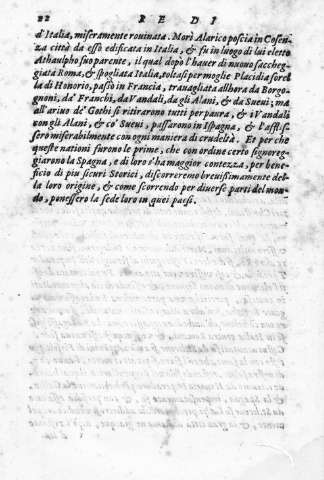 22 RE DI
d'Italia, miseramente rouinata. Morì Alarico poscia in Cosen
za città da esso edificata in Italia, & fu in luogo di lui eletto
Athaulpho suo parente, il qual dopò l'hauer di nuouo saccheg
giata Roma, & spogliata Italia, toltasi per moglie Placidia sorel
la di Honorio, passò in Francia, trauagliata allhora da Borgo-
gnoni, da' Franchi, da Vandali, da gli Alani, & da Sueui; ma
all'ariuo de' Gothi si ritirarono tutti per paura, & i Vandali
con gli Alani, & co' Sueui, passarono in Ispagna, & l'afflis-
sero miserabilmente con ogni maniera di crudeltà. Et perche
queste nationi furono le prime, che con ordine certo signoreg-
giarono la Spagna, e di loro s'ha maggior contezza, per bene-
ficio di piu sicuri Storici, discorreremo breuissimamente del-
la loro origine, & come scorrendo per diuerse parti del mon-
do, ponessero la sede loro in quei paesi.